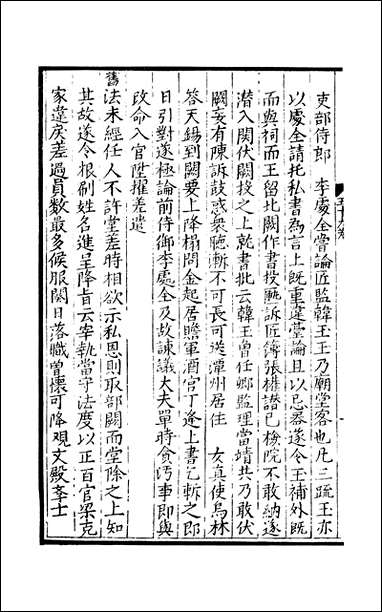 吏部侍郎　李處全嘗論匠監韓玉玉乃廟堂客也凡三疏玉亦
以處全請托私書為言上既重違堂論且以忌器遂令玉補外既
而與祠而玉留北闕作書投匭訴匠簿張權譖已檢院不敢納遂
潛入闕伏闕投之上乾書批云韓玉曾任鄉監理當靖共乃敢伏
闕妄有陳訴鼓惑衆聽漸不可長可送潭州居住　女真使烏林
答天錫到闕要上降榻問金起居贍軍酒官丁逢上書乞斬之即
日引對遂極論前侍御李處全及故諫議大夫單時貪污事即與
改命入官陞擢差遣
舊法未經任人不許堂差時相欲示私恩則取部闕而堂除之上知
其故遂令根刷姓名進呈降旨云宰執當守法度以正百官梁克
家違戾差過員數最多候服闋日落職曽懷可降觀文殿學士